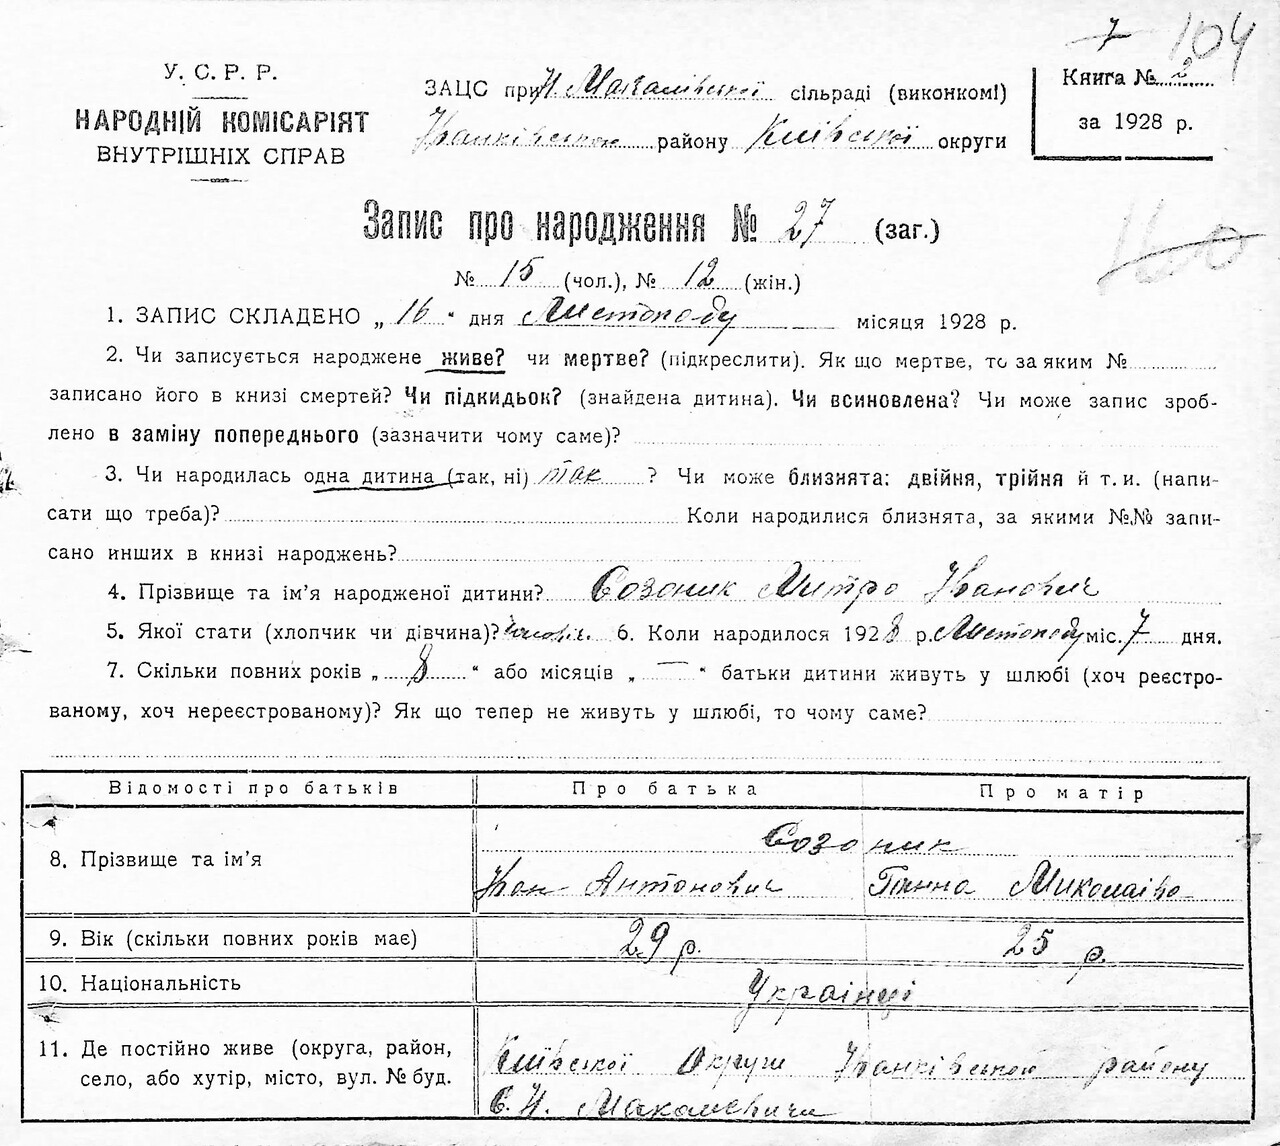 7 104
У. С. Р. Р.
НАРОДНІЙ КОМІСАРІЯТ
ВНУТРІШНІХ СПРАВ
ЗАЦС при Н Макалівської сільраді (виконкомі)
Іванківського району Київської округи
Книга № 2
за 1928 р.
Запис про народження № 27 (заг.)
160
№ 15 (чол.), № 12 (жін.)
1. ЗАПИС СКЛАДЕНО „ 16 “ дня Листопаду місяця 1928 р.
2. Чи записується народжене живе? чи мертве? (підкреслити). Як що мертве, то за яким №
записано його в книзі смертей? Чи підкидьок? (знайдена дитина). Чи всиновлена? Чи може запис зроб-
лено в заміну попереднього (зазначити чому саме)?
3. Чи народилась одна дитина (так, ні) так ? Чи може близнята: двійня, трійня й т. и. (напи-
сати що треба)? Коли народилися близнята, за якими №№ запи-
сано инших в книзі народжень?
4. Прізвище та ім’я народженої дитини? Созоник Митро Іванович
5. Якої стати (хлопчик чи дівчина)? 6. Коли народилося 1928 р. Листопаду міс. 7 дня.
7. Скільки повних років „ 8 “ або місяців „ — “ батьки дитини живуть у шлюбі (хоч реєстро-
ваному, хоч нереєстрованому)? Як що тепер не живуть у шлюбі, то чому саме?
Відомості про батьків Про батька Про матір
8. Прізвище та ім’я Созоник
Іван Антонович Ганна Миколаівна
9. Вік (скільки повних років має) 29 р. 25 р.
10. Національність Українці
11. Де постійно живе (округа, район,
село, або хутір, місто, вул. № буд.
Київської Округи Іванківського району
С. Н. Макалевичи